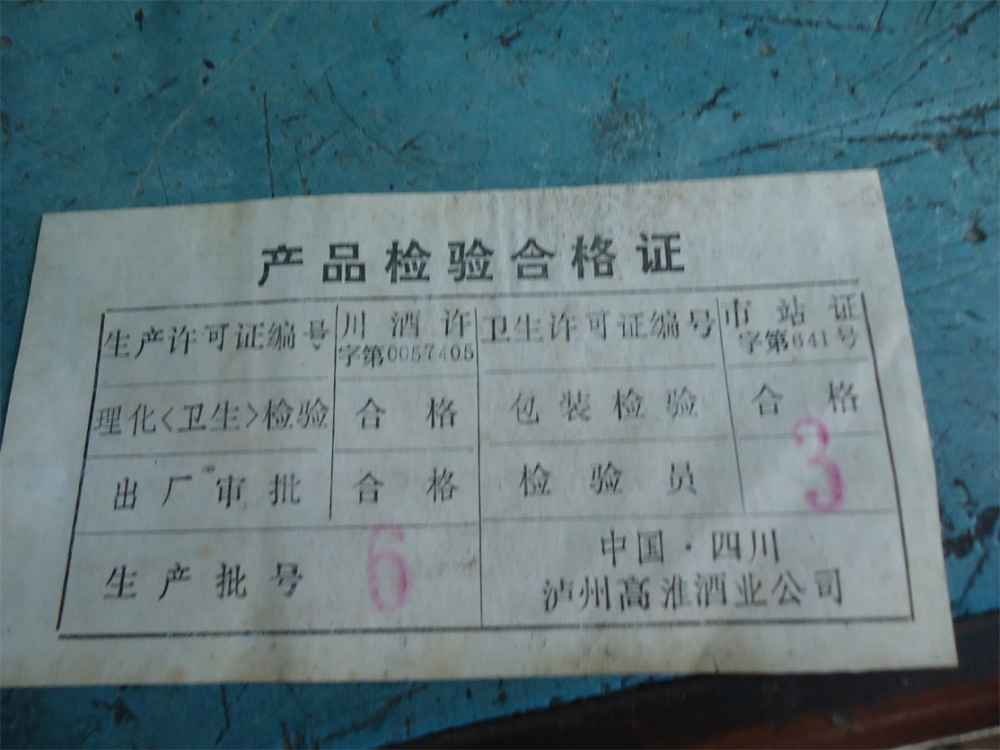 产品检验合格证
生产许可证编号 川酒许 卫生许可证编号 市站证
字第0057405 字第641号
理化<卫生>检验 合格 包装检验 合格
出厂审批 合格 检验员 3
生产批号 6 中国·四川
泸州高淮酒业公司